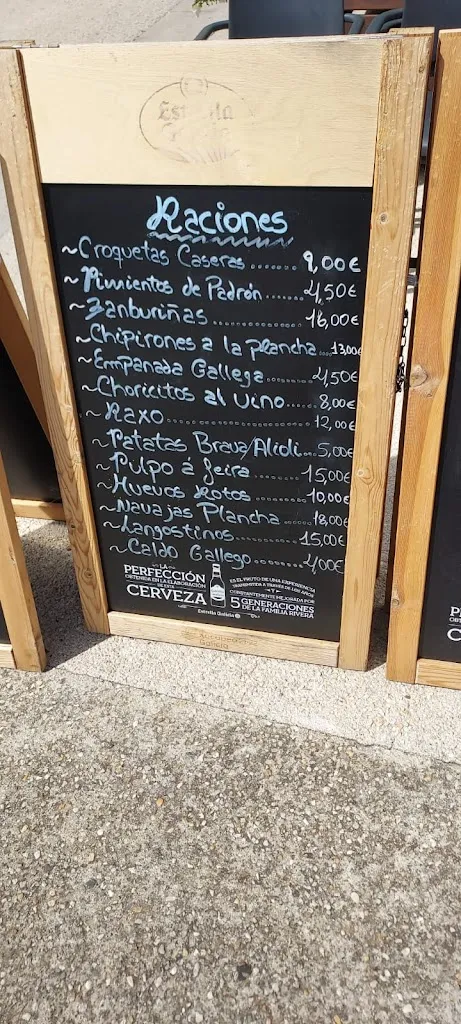 Estrella
Galicia
Raciones
~Croquetas Caseras........ 9,00€
~Pimientos de Padrón....... 4,50€
~Zamburiñas.................. 16,00€
~Chipirones a la plancha...13,00€
~Empanada Gallega.......... 4,50€
~Choricitos al vino...... 8,00€
~Raxo.......................... 12,00€
~Patatas Brava/Alioli... 5,00€
~Pulpo á feira............ 15,00€
~Huevos Rotos........... 10,00€
~Navajas Plancha........ 18,00€
~Langostinos............ 15,00€
~Caldo Gallego.......... 4,00€
LA
PERFECCIÓN
OBTENIDA EN LA ELABORACIÓN
DE ESTA
CERVEZA
ES EL FRUTO DE UNA EXPERIENCIA
TRANSMITIDA A TRAVÉS DE LOS AÑOS
Y
CONSTANTEMENTE MEJORADA POR
5 GENERACIONES
DE LA FAMILIA RIVERA
Estrella Galicia